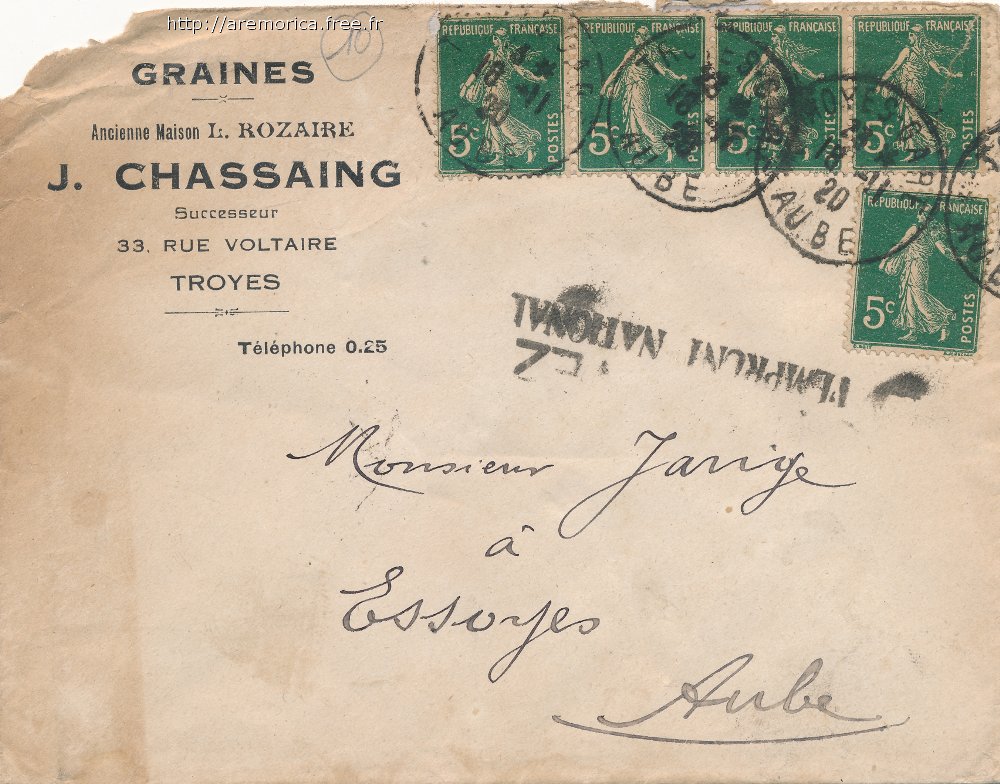 http://aremorica.free.fr
10
GRAINES
Ancienne Maison L. ROZAIRE
J. CHASSAING
Successeur
33, RUE VOLTAIRE
TROYES
Téléphone 0.25
REPUBLIQUE FRANÇAISE
5c
POSTES
REPUBLIQUE FRANÇAISE
5c
POSTES
REPUBLIQUE FRANÇAISE
5c
POSTES
REPUBLIQUE FRANÇAISE
5c
POSTES
REPUBLIQUE FRANÇAISE
5c
POSTES
TROYES GARE
18
20
AUBE
TROYES GARE
18 - 11
20
AUBE
L'EMPRUNT NATIONAL
Monsieur Jarrige
à
Essoyes
Aube